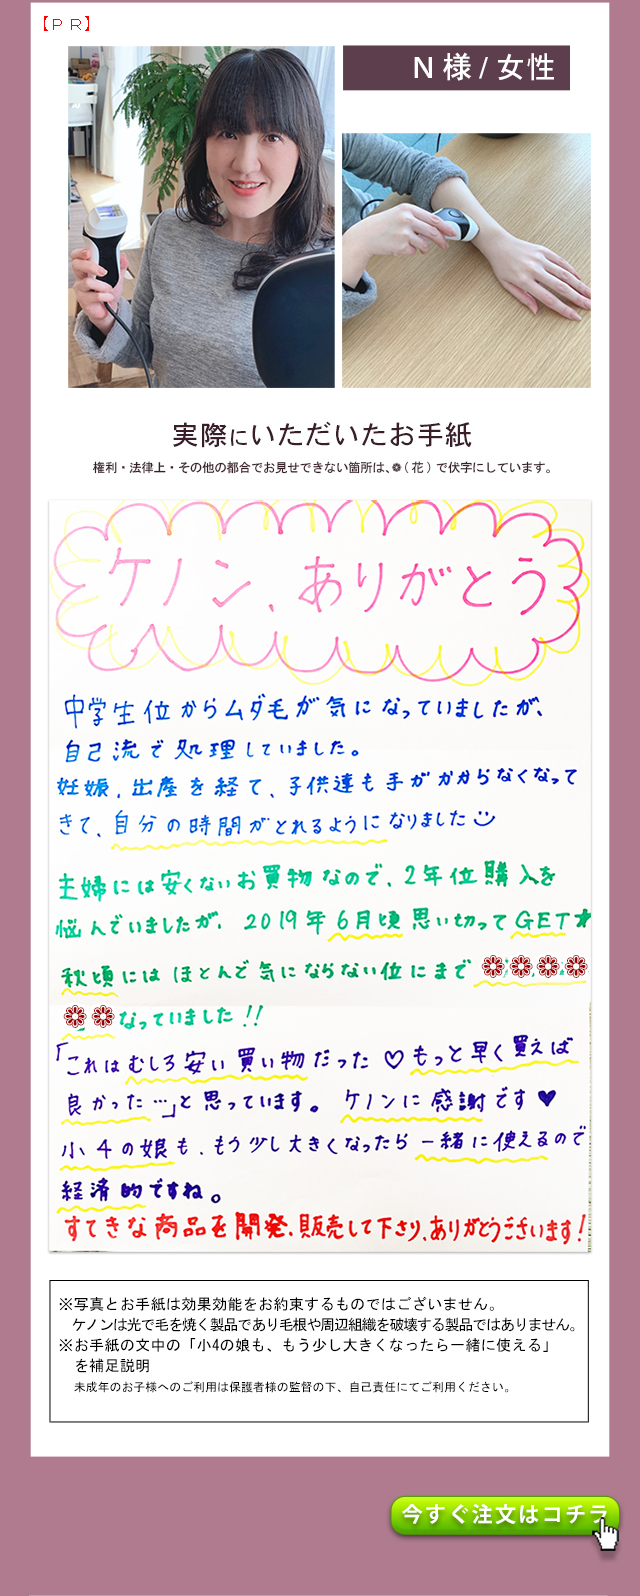 【ＰＲ】
N 様 / 女性
実際にいただいたお手紙
権利・法律上・その他の都合でお見せできない箇所は、❁（花）で伏字にしています。
ケノン、ありがとう
中学生位からムダ毛が気になっていましたが、
自己流で処理していました。
妊娠、出産を経て、子供達も手がかからなくなって
きて、自分の時間がとれるようになりました
主婦には安くないお買物なので、2年位購入を
悩んでいましたが、2019年6月頃思い切ってGET★
秋頃にはほとんど気にならない位にまで❁❁❁❁
❁❁なっていました!!
「これはむしろ安い買い物だった♡もっと早く買えば
良かった…」と思っています。ケノンに感謝です♥
小4の娘も、もう少し大きくなったら一緒に使えるので
経済的ですね。
すてきな商品を開発、販売して下さり、ありがとうございます!
※写真とお手紙は効果効能をお約束するものではございません。
ケノンは光で毛を焼く製品であり毛根や周辺組織を破壊する製品ではありません。
※お手紙の文中の「小4の娘も、もう少し大きくなったら一緒に使える」
を補足説明
未成年のお子様へのご利用は保護者様の監督の下、自己責任にてご利用ください。
今すぐ注文はコチラ